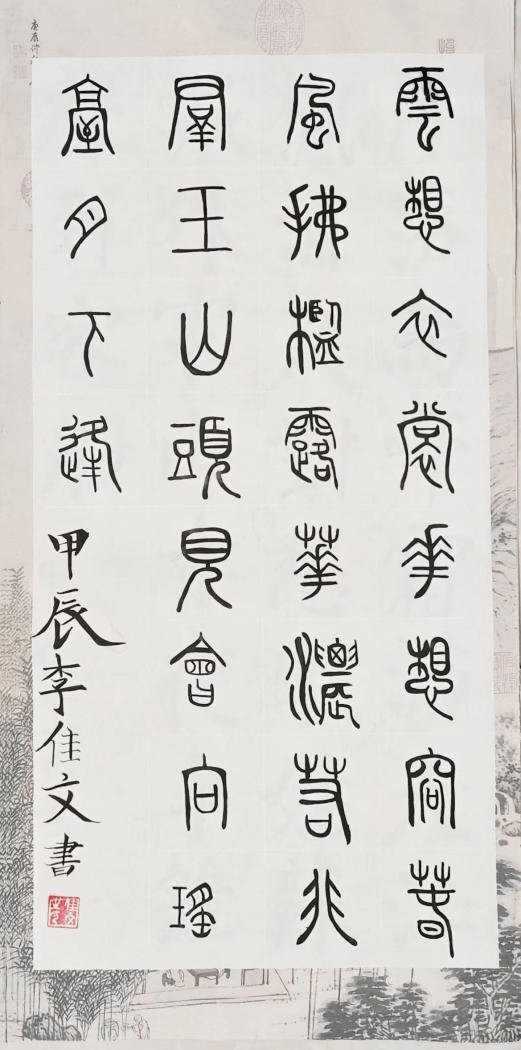 雲想衣裳花想容春
風拂檻露華濃若非
羣玉山頭見會向瑤
臺月下逢
甲辰李佳文書